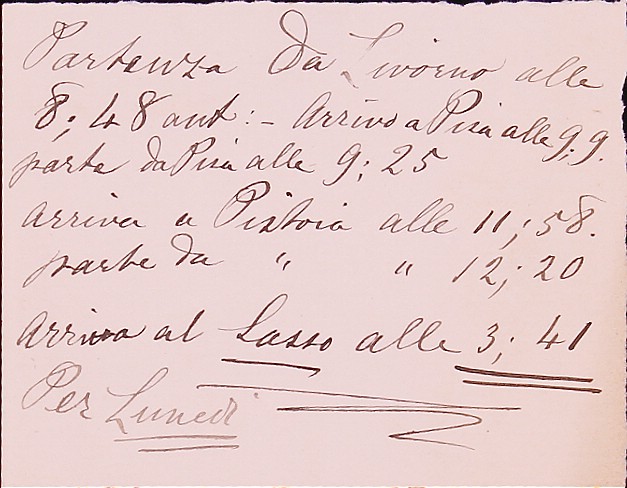 Partenza Da Livorno alle
8; 48 ant: - Arrivo a Pisa alle 9; 9.
parte da Pisa alle 9; 25
arriva a Pistoia alle 11; 58.
parte da " " 12; 20
Arriva al Sasso alle 3; 41
Per Lunedì